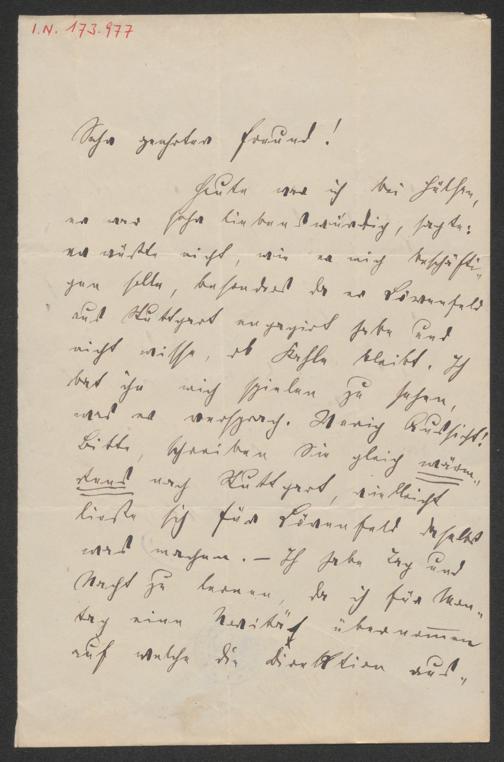 I.N. 173.977
Sehr geehrter Freund!
Heute war ich bei Hülsen,
er war sehr liebenswürdig, sagte:
er wüßte nicht, wie er mich beschäfti-
gen solle, besonders da er Löwenfeld
aus Stuttgart engagirt habe und
nicht wisse, ob Kahle bleibt. Ich
bat ihn mich spielen zu sehen,
was er versprach. Wenig Aussicht!
Bitte, schreiben Sie gleich wärm-
stens nach Stuttgart, vielleicht
ließe sich für Löwenfeld daselbst
was machen. – Ich habe Tag und
Nacht zu lernen, da ich für Mon-
tag eine Novität übernommen
auf welche die Direktion aus-